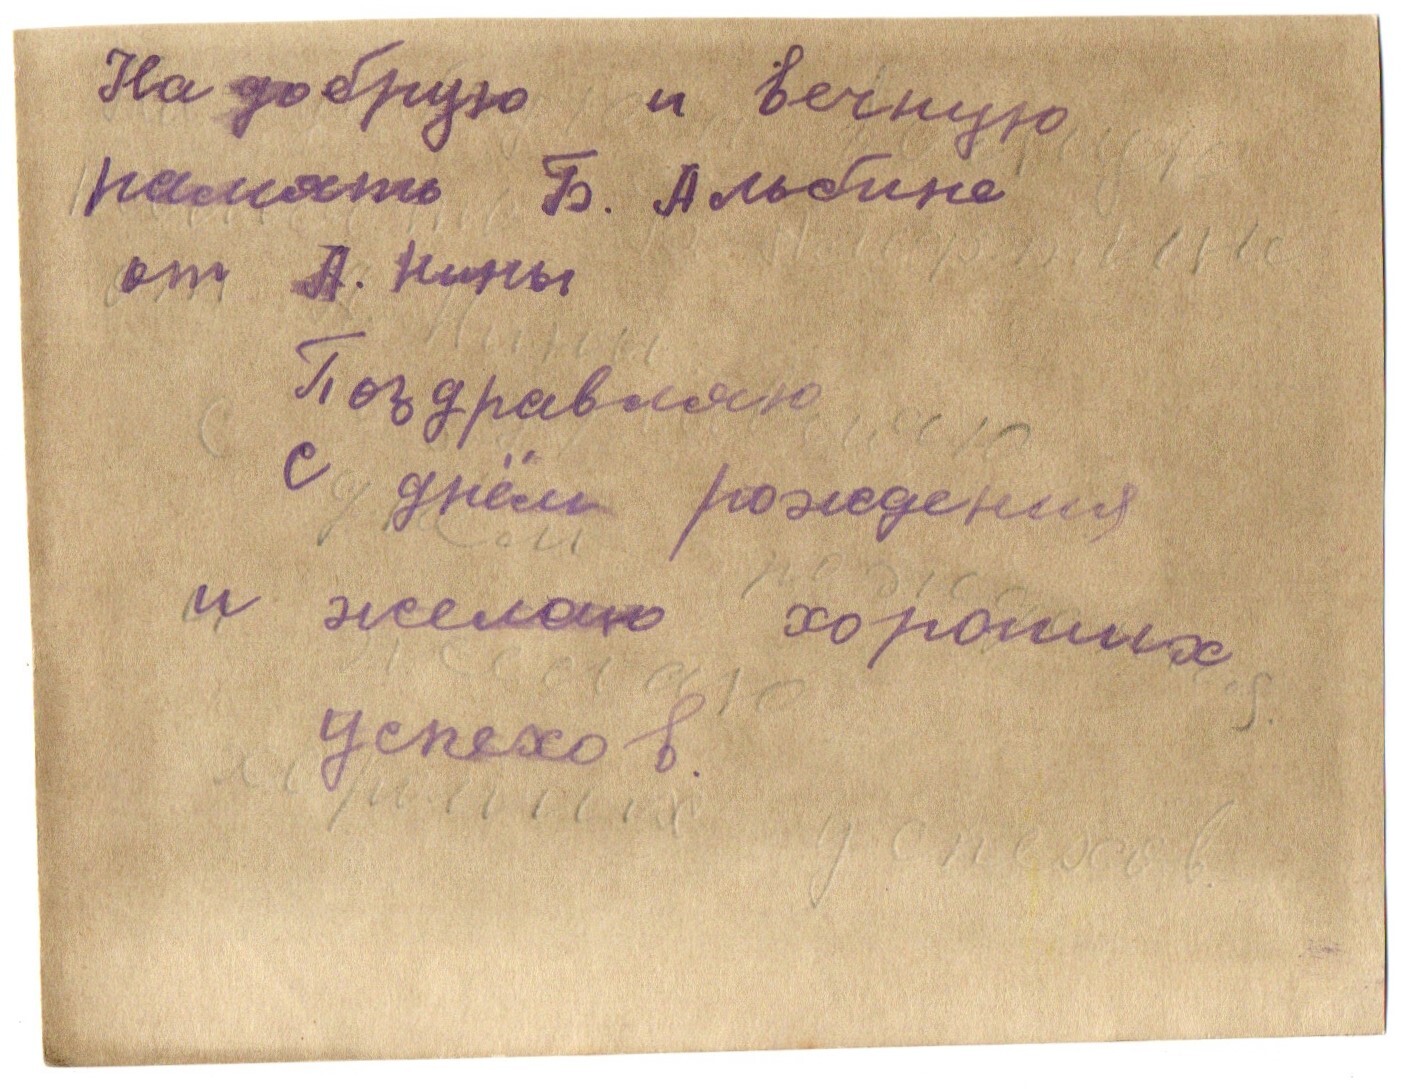 На добрую и вечную
память Б. Альбине
от А. Нины
Поздравляю
С днём рождения
и желаю хороших
успехов.